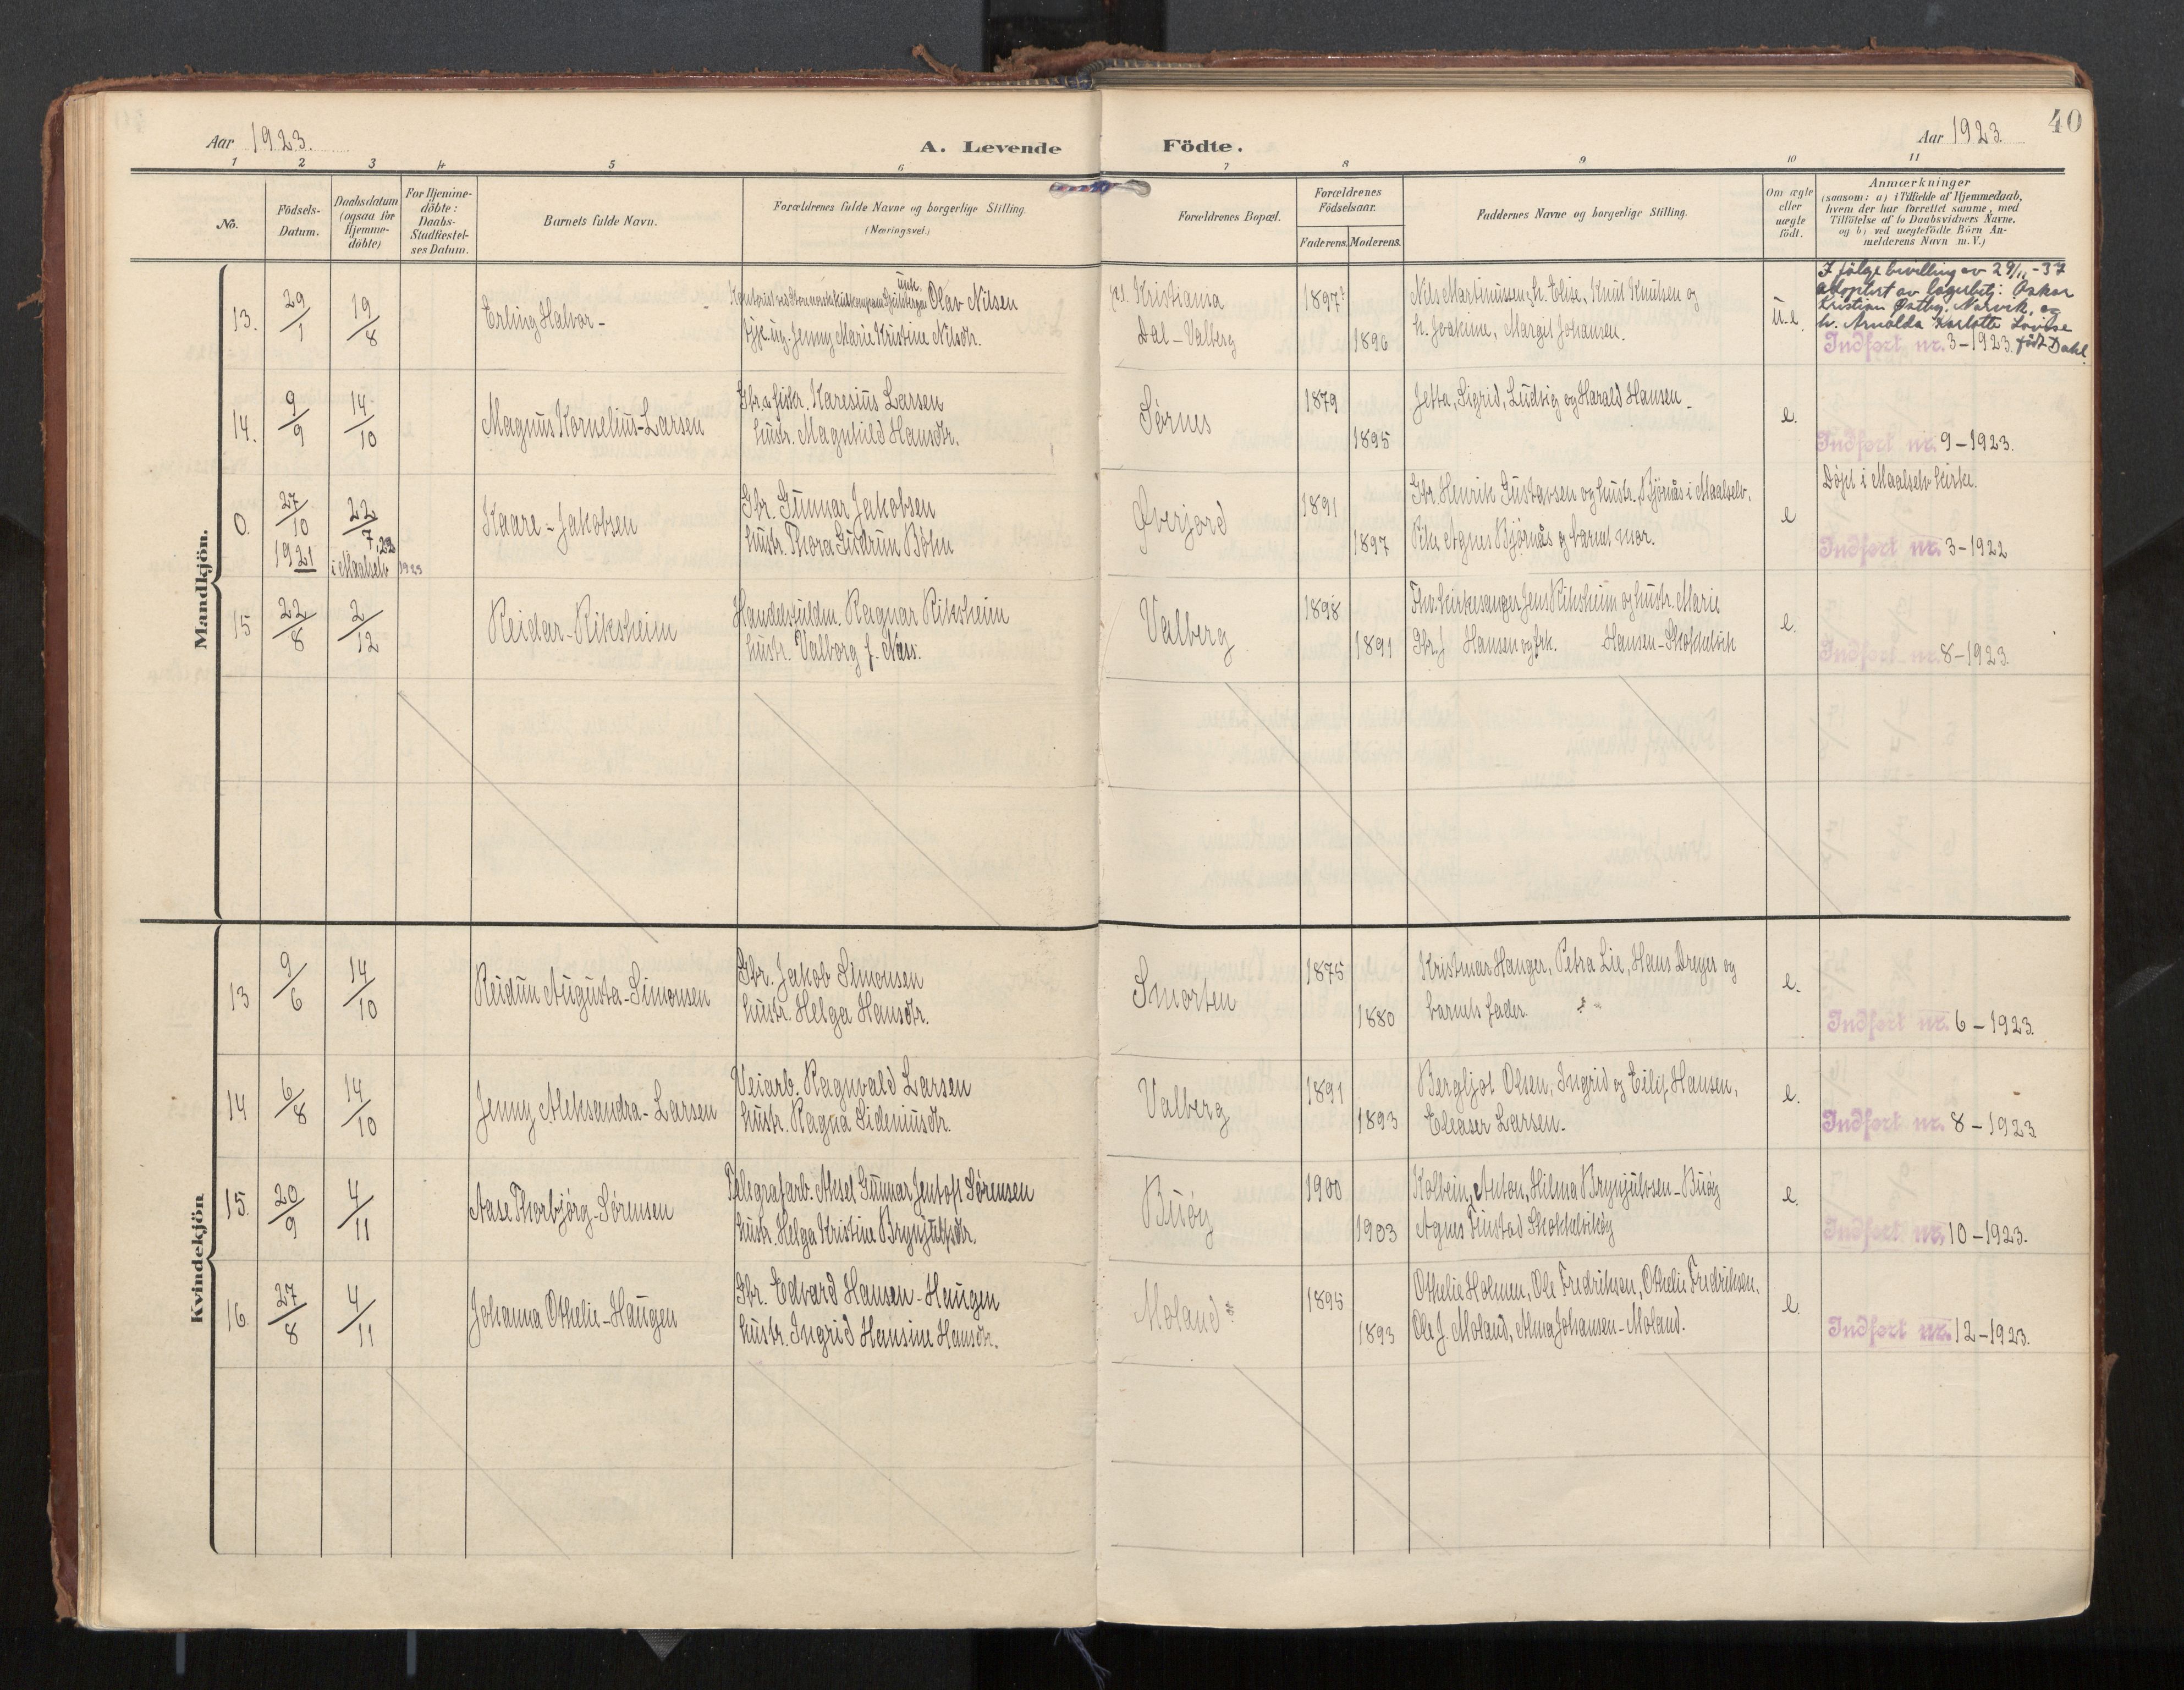 40
Aar 1923.
A. Levende Födte.
Aar 1923.
1 2 3 4 5 6 7 8 9 10 11
No.
Födsels-
Datum.
Daabsdatum
(ogsaa for
Hjemme-
döbte)
For Hjemme-
döbte:
Daabs-
Stadfæstel-
ses Datum.
Barnets fulde Navn.
Forældrenes fulde Navne og borgerlige Stilling.
(Næringsvei.)
Forældrenes Bopæl.
Forældrenes
Födselsaar.
Faderens. Moderens.
Faddernes Navne og borgerlige Stilling.
Om ægte
eller
uægte
födt.
Anmærkninger
(saasom: a) i Tilfælde af Hjemmedaab,
hvem der har forrettet samme, med
Tilföielse af to Daabsvidners Navne,
og b) ved uægtefödte Börn An-
melderens Navn m. V.)
Mandkjön.
13. 29/1 19/8 Erling Halvor-
unk. Olav Nilsen
pig. Jenny Marie Kristine Nilsdtr.
Kristiania
Dal-Valberg
1897?
1896
Nils Martinussen, h. Elise, Knut Knutsen og
h. Joakine, Margit Johansen.
u.e.
I følge bevilling av 29/11-37
adoptert av lagerbetj: Oskar
Kristian Østby, Narvik, og
h. Arnolda Karlotte Lovise
født Dahl.
Indført nr. 3-1923.
14. 9/9 14/10 Magnus Kornelius-Larsen
Gbr. & fisker. Karesius Larsen
hustr. Magnhild Hansdtr.
Sørnes
1879
1895
Jetta, Sigrid, Ludvig og Harald Hansen.
e.
Indført nr. 9-1923.
0. 27/10 1921 22/7
i Maalselv
Kaare-Jakobsen
Gbr. Gunnar Jakobsen
hustr. Thora Gudrun Bøhn
Øverjord
1891
1897
Gbr. Henrik Gustavsen og hustr., Bjönås i Maalselv.
Pike Agnes Bjørnås og barnet mor.
e
Döpt i Maalselv kirke.
Indført nr. 3-1922
15 22/8 2/12 Reidar-Riksheim
Handelsfuldm. Ragnar Riksheim
hustr. Valborg f. Næss.
Valberg
1898
1891
Fhv. kirkesanger Jens Riksheim og hustr. Marie
Gbr. J Hansen og frk. Hansen-Skokkelvik
e.
Indført nr. 8-1923.
Kvindekjön
13 9/6 14/10 Reidun Augusta-Simonsen
Gbr. Jakob Simonsen
hustr. Helga Hansdtr.
Smorten
1875
1880
Kristmar Hanger, Petra Lie, Hans Dreyer og
barnets fader.
e.
Indført nr. 6-1923.
14 6/8 14/10 Jenny Aleksandra-Larsen
Veiarb. Ragnvald Larsen
hustr. Ragna Sideniusdtr.
Valberg
1891
1893
Bergljot Olsen, Ingrid og Eilif Hansen,
Eleaser Larsen.
e.
Indført nr. 8-1923
15. 20/9 4/11 Aase Thorbjørg-Sørensen
Telegrafarb. Aksel Gunnar Jentoft Sørensen
hustr. Helga Kristine Brynjulfsdtr.
Buøy
1900
1903
Kolbein, Anton, Hilma Brynjulvsen-Buøy
Agnes Finstad Skokkelvikøy
e.
Indført nr. 10-1923.
16. 27/8 4/11 Johanna Othelie-Haugen
Gbr. Edvard Hansen-Haugen
hustr. Ingrid Hansine Hansdtr.
Moland
1895
1893
Othelie Holmen, Ole Fredriksen, Othelie Fredriksen,
Ole J. Moland, Alma Johansen-Moland.
e.
Indført nr. 12-1923.